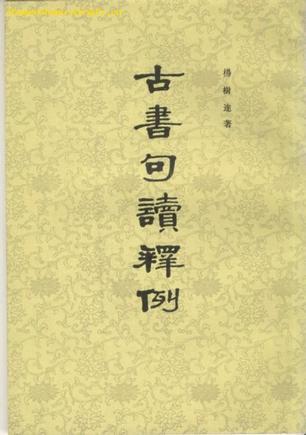 楊樹達著
古書句讀釋例